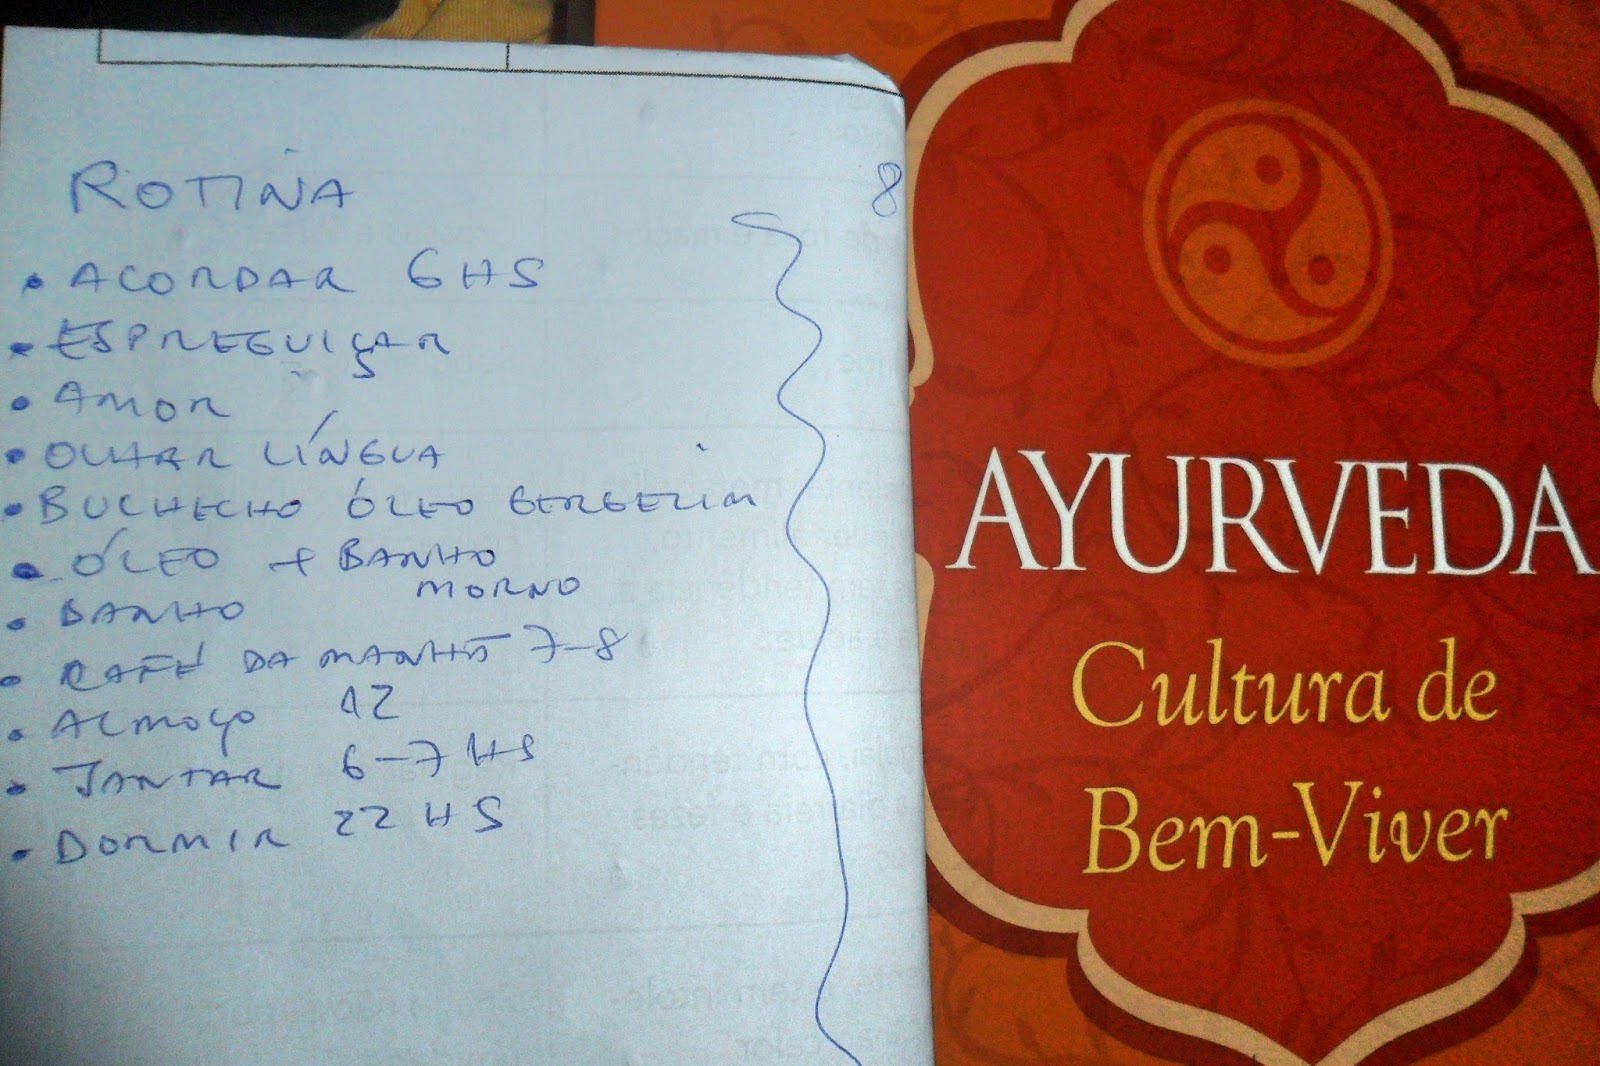 ROTINA
8
• ACORDAR 6 HS
• ESPREGUIÇAR
• AMOR
• OLHAR LÍNGUA
• BUCHECHO ÓLEO GERGELIM
• ÓLEO + BANHO
MORNO
• BANHO
• CAFÉ DA MANHÃ 7-8
• ALMOÇO 12
• JANTAR 6-7 HS
• DORMIR 22 HS
AYURVEDA
Cultura de
Bem-Viver